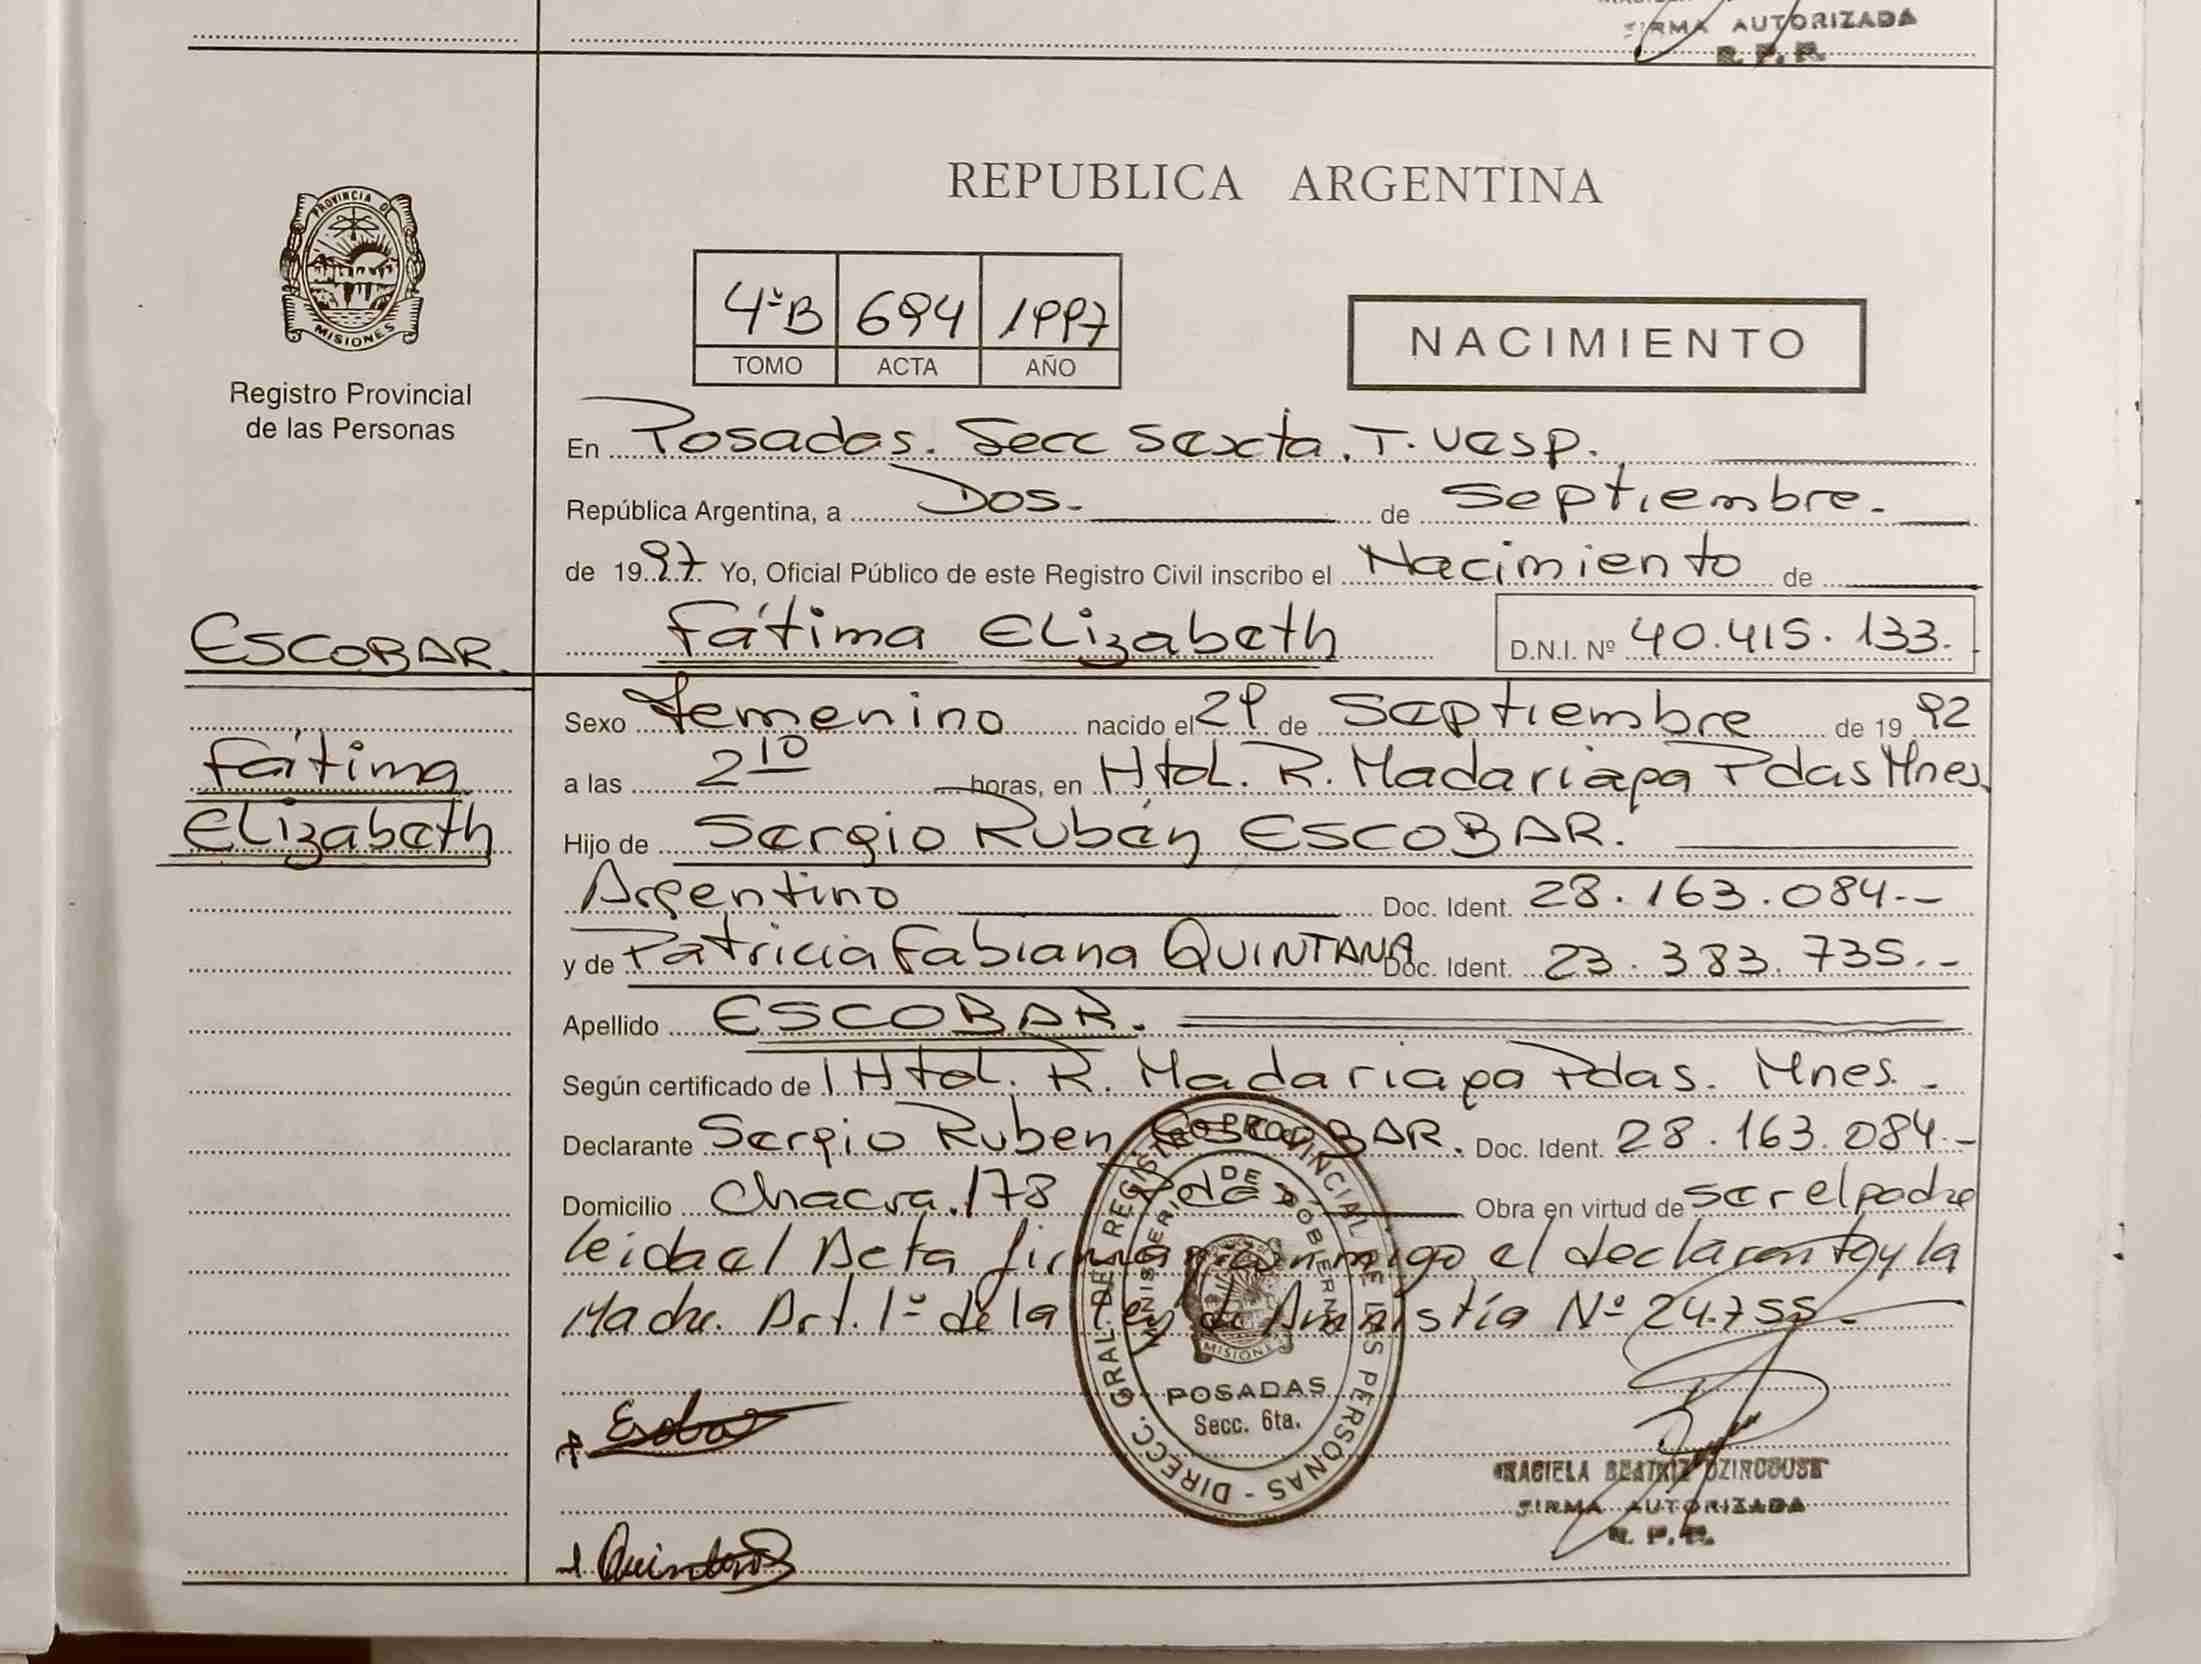 FIRMA AUTORIZADA
R. P. P.
PROVINCIA DE
MISIONES
Registro Provincial
de las Personas
REPUBLICA ARGENTINA
4ºB 694 1997
TOMO ACTA AÑO
NACIMIENTO
En Posadas. Secc Sexta. T. Vesp.
República Argentina, a Dos. de Septiembre.
de 1997. Yo, Oficial Público de este Registro Civil inscribo el Nacimiento de
ESCOBAR
Fátima Elizabeth D.N.I. Nº 40.415.133.
Fátima
Elizabeth
Sexo Femenino nacido el 29 de Septiembre de 1992
a las 2 10 horas, en Htal. R. Madariaga Pdas Mnes
Hijo de Sergio Rubén ESCOBAR.
Argentino Doc. Ident. 28.163.084.--
y de Patricia Fabiana QUINTANA Doc. Ident. 23.383.735.-
Apellido ESCOBAR.
Según certificado de l Htal. R. Madariaga Pdas. Mnes.-
Declarante Sergio Ruben ESCOBAR. Doc. Ident. 28.163.084.-
Domicilio Chacra.178 Pdas Obra en virtud de ser el padre
leida el Acta firman conmigo el declarante y la
Madre. Art. 1º de la Ley de Amnistía Nº 24.755.-
DIRECC. GRAL. DEL REGISTRO PROVINCIAL DE LAS PERSONAS
MINISTERIO DE GOBIERNO
MISIONES
POSADAS
Secc. 6ta.
Escobar
GRACIELA BEATRIZ
FIRMA AUTORIZADA
R. P. P.
Quintana